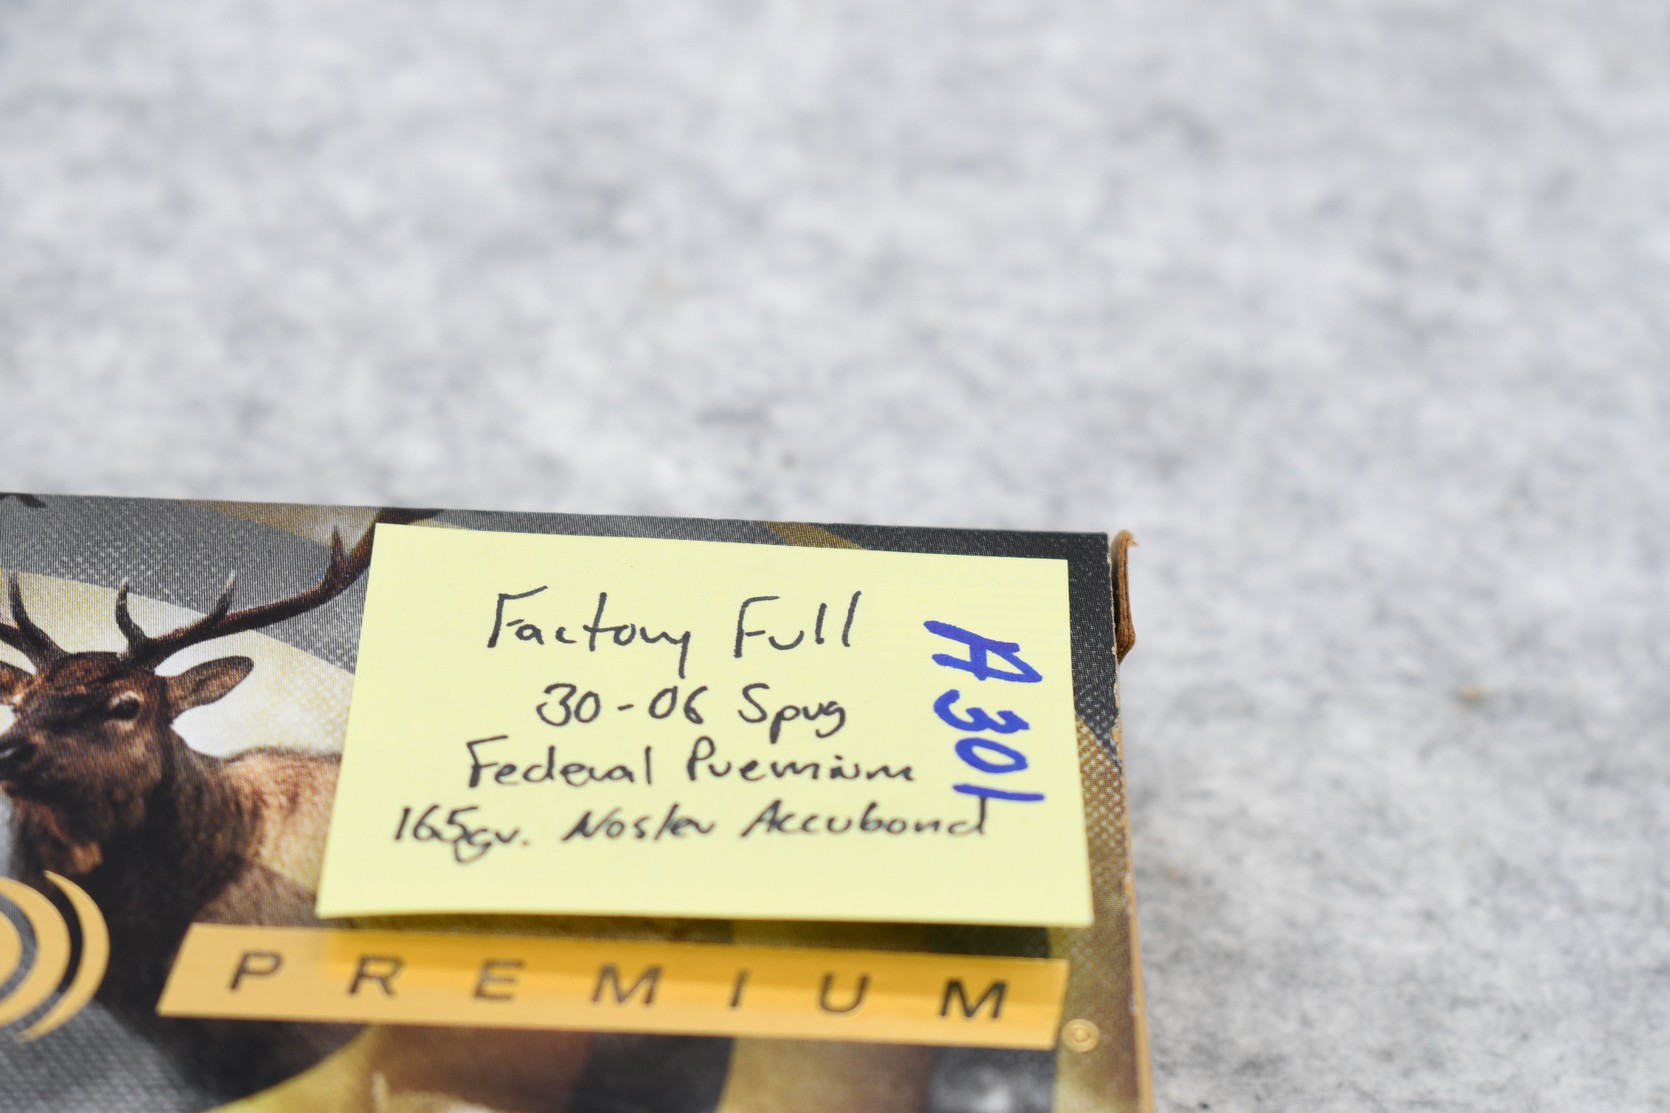 Factory Full
30-06 Sprg
Federal Premium
165gr. Nosler Accubond
A301
PREMIUM